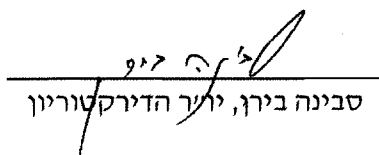 סבינה בירן, יו"ר הדירקטוריון